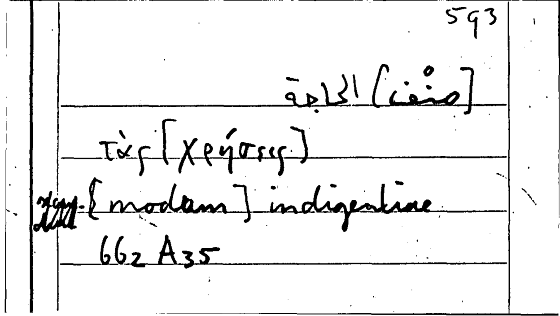 593
[صنف] الحاجة
τὰς [χρήσεις]
[modum] indigentiae
662 A35